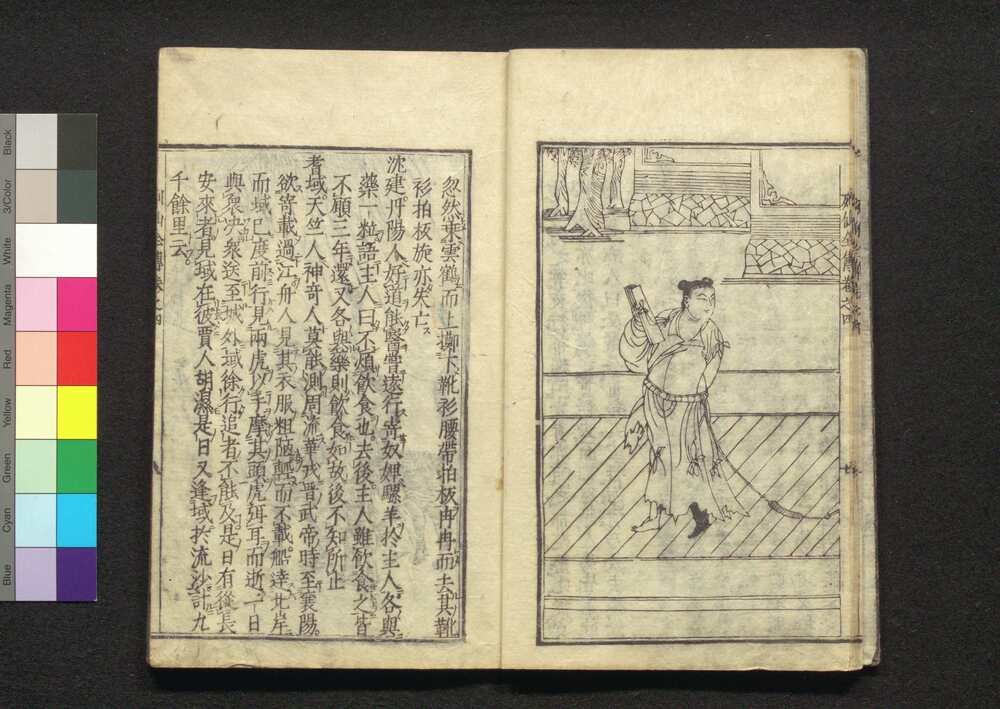 忽然乗雲鶴而上擲下靴衫腰帶拍板冉冉而去其靴
衫拍板旋亦失亡
沈建丹陽人好道能醫嘗遠行寄奴婢驢羊於主人各與
藥一粒語主人曰不煩飲食也去後主人雖飲食之皆
不顧三年還又各與藥則飲食如故後不知所止
耆域天竺人神竒人莫能測周流華戎晋武帝時至襄陽
欲寄載過江舟人見其衣服粗陋輕而不載船達北岸
而域已度前行見兩虎以手摩其頭虎弭耳而逝一日
與衆决衆送至城外域徐行追者不能及是日有從長
安來者見域在彼賈人胡濕是日又逢域於流沙計九
千餘里云
Black
3/Color
White
Magenta
Red
Yellow
Green
Cyan
Blue